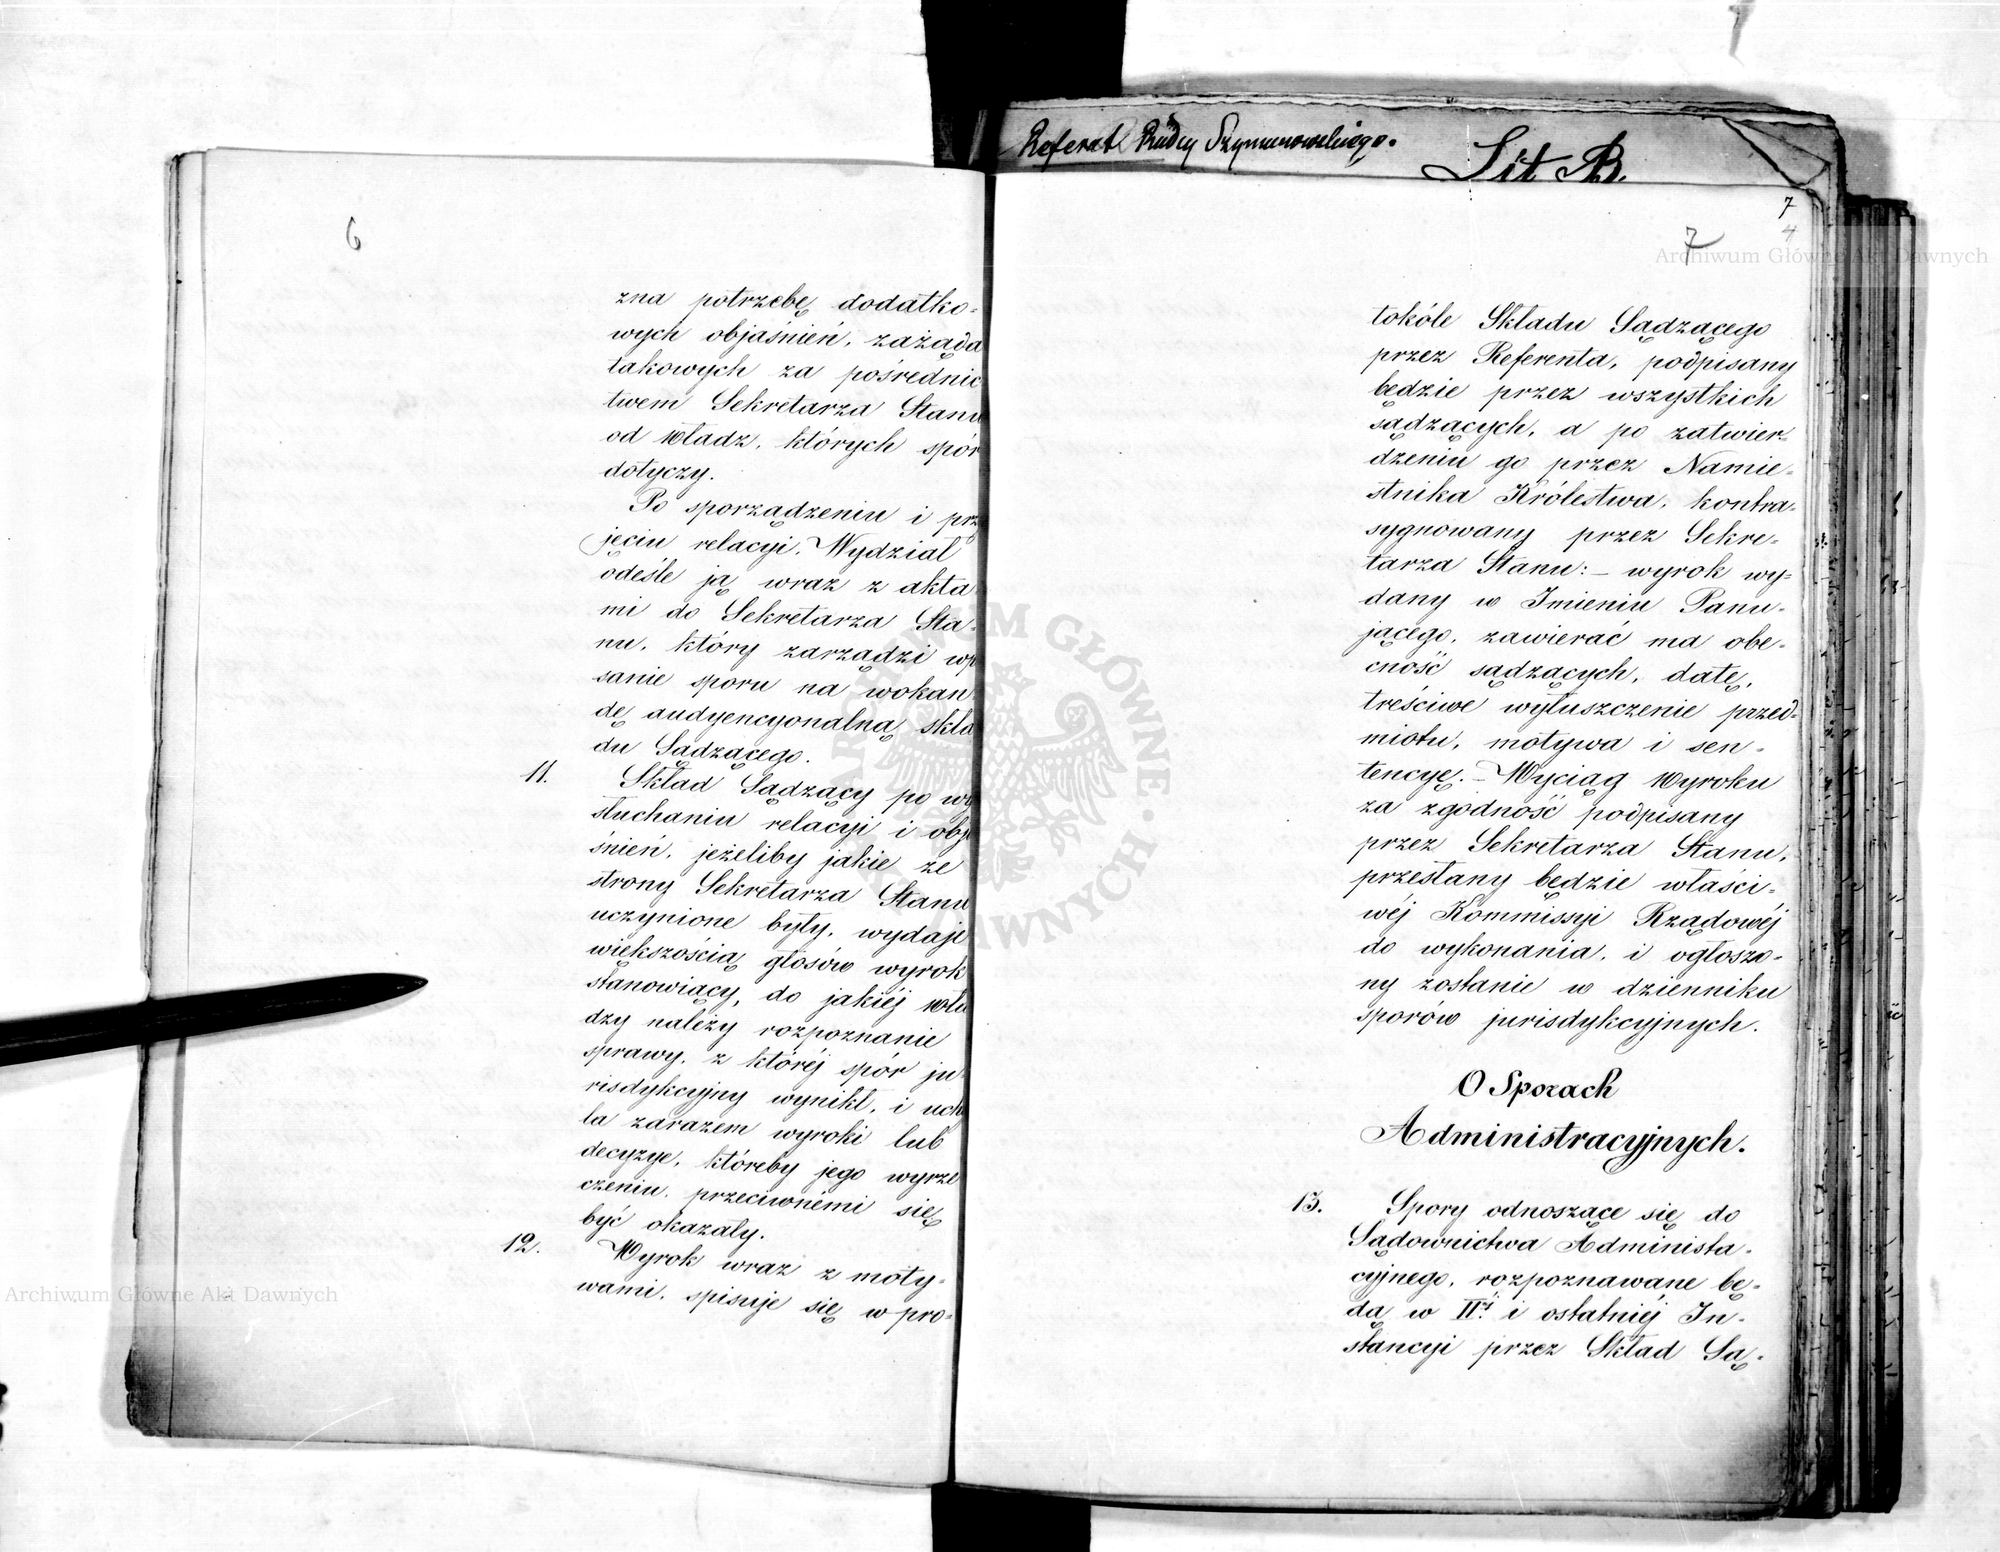 6
zna potrzebę dodatko-
wych objaśnień, zażąda
takowych za pośrednic
twem Sekretarza Stanu
od władz, których spór
dotyczy.
Po sporządzeniu i prz
jęciu relacyi, Wydział
odeśle ją wraz z akta
mi do Sekretarza Sta-
nu, który zarządzi wp
sanie sporu na wokan
dę audyencyonalną skła
du Sądzącego.
11. Skład Sądzący po wy
słuchaniu relacyi i obja
śnień, jeżeliby jakie ze
strony Sekretarza Stanu
uczynione były, wydaje
większością głosów wyrok
stanowiący, do jakiéj wła
dzy należy rozpoznanie
sprawy, z któréj spór ju-
risdykcyjny wynikł, i uch
la zarazem wyroki lub
decyzye, któreby jego wyrze
czeniu, przeciwnémi się
być okazały.
12. Wyrok wraz z moty-
wami, spisuje się w pro-
Referat Radcy Szymanowskiego.
Lit B.
7
4
7
tokóle Składu Sądzącego
przez Referenta, podpisany
będzie przez wszystkich
sądzących, a po zatwier-
dzeniu go przez Namie-
stnika Królestwa, kontra-
sygnowany przez Sekre-
tarza Stanu: – wyrok wy-
dany w Imieniu Panu-
jącego, zawierać ma obe-
cność sądzących, datę,
treściwe wyłuszczenie przed-
miotu, motywa i sen-
tencyę. – Wyciąg wyroku
za zgodność podpisany
przez Sekretarza Stanu,
przesłany będzie właści-
wéj Kommissyi Rządowéj
do wykonania, i ogłoszo-
ny zostanie w dzienniku
sporów jurisdykcyjnych.
O Sporach
Administracyjnych.
13. Spory odnoszące się do
Sądownictwa Administa-
cyjnego, rozpoznawane bę-
dą w IIéj i ostatniéj In-
stancyi przez Skład Są-
Archiwum Główne Akt Dawnych
Archiwum Główne Akt Dawnych
ARCHIWUM GŁÓWNE AKT DAWNYCH